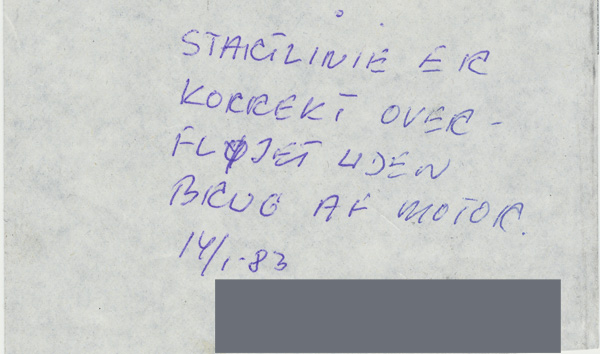 STARTLINIE ER
KORREKT OVER-
FLØJET UDEN
BRUG AF MOTOR.
14/1-83